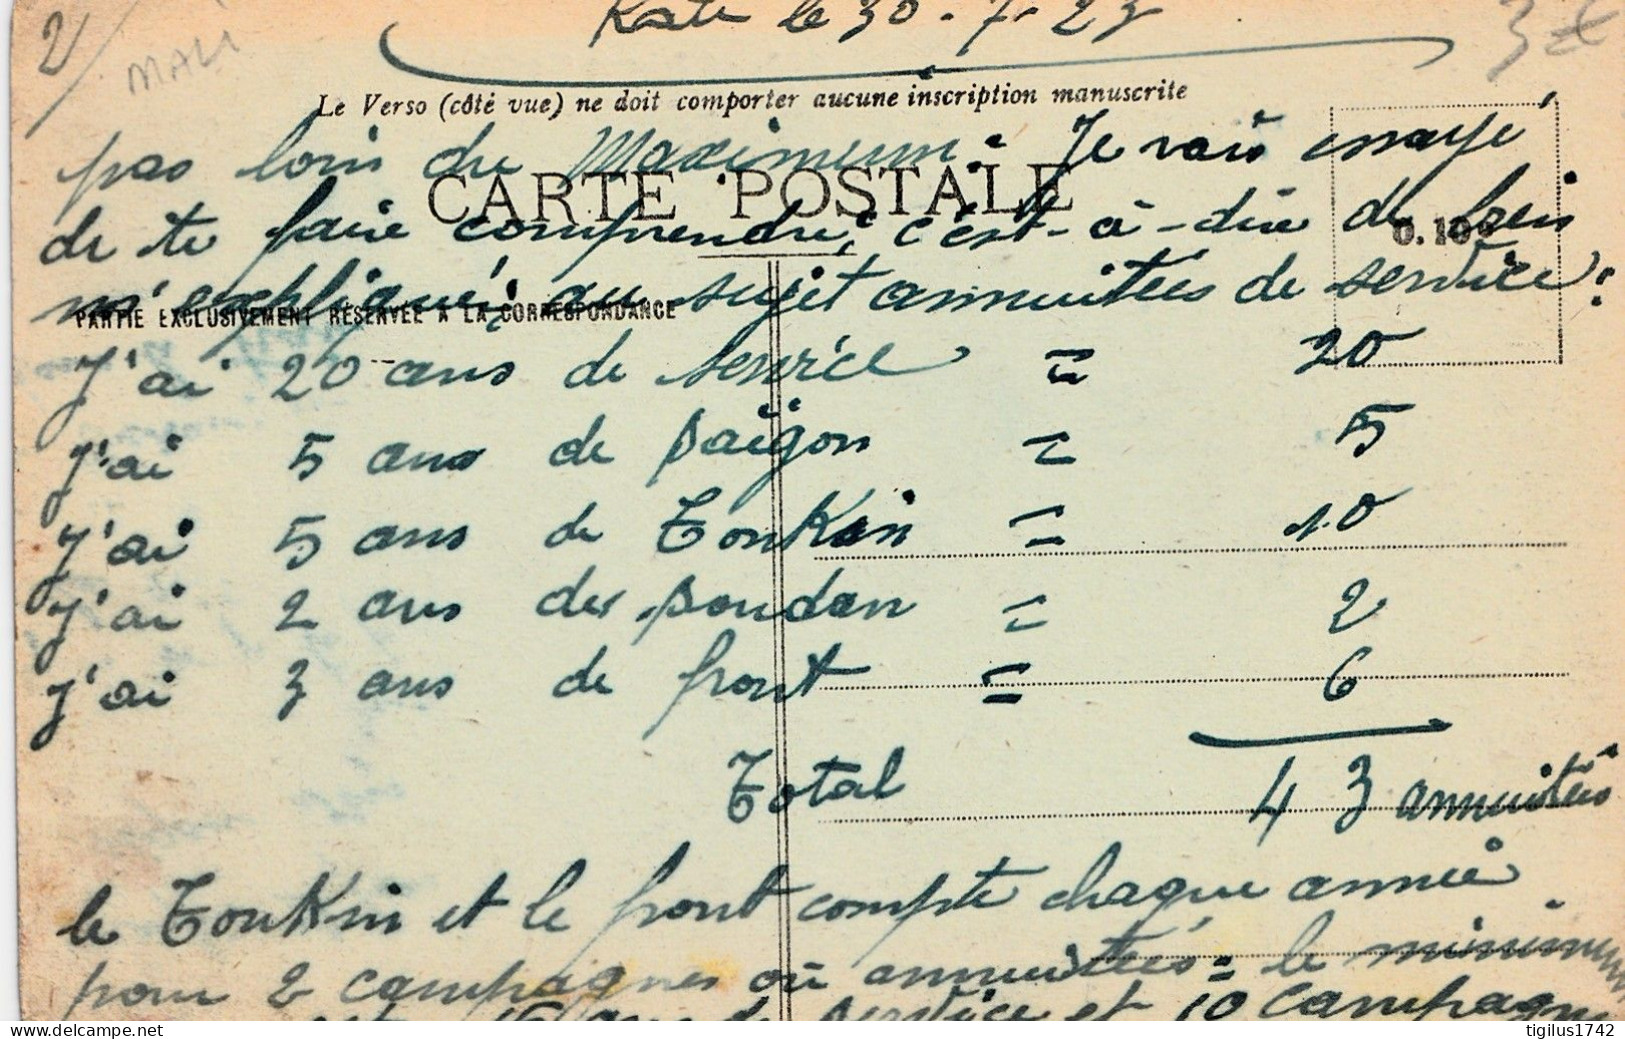 2/
MALI
Kati le 30-7-23
3€
Le Verso (côté vue) ne doit comporter aucune inscription manuscrite
pas loin du Maximum. Je vais essayé
CARTE POSTALE
de te faire comprendre, c'est-à-dire de bien
0.10
m'expliqué, au sujet annuitées de service:
PARTIE EXCLUSIVEMENT RÉSERVÉE A LA CORRESPONDANCE
J'ai 20 ans de service = 20
J'ai 5 ans de saïgon = 5
J'ai 5 ans de TonKin = 10
J'ai 2 ans de soudan = 2
J'ai 3 ans de front = 6
Total 43 annuités
le TonKin et le front compte chaque année
pour 2 campagnes ou annuitées = le minimum
15 ans de service et 10 campagn
tigilus1742